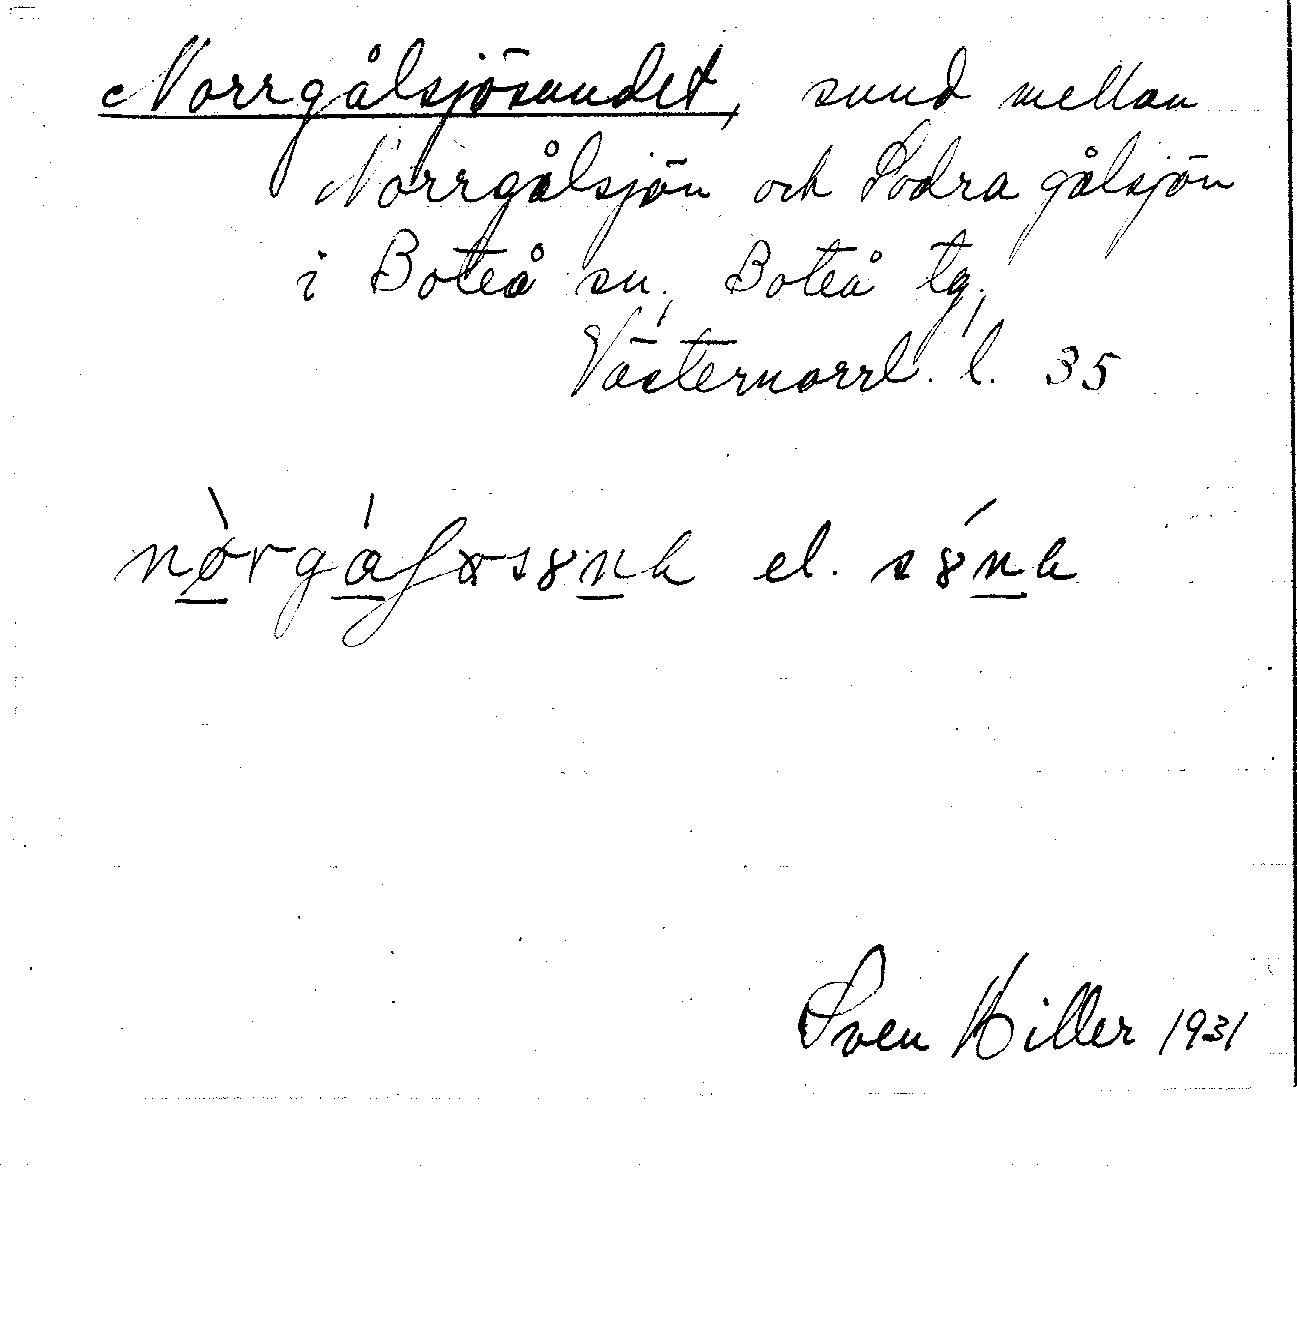 Norrgålsjösundet, sund mellan
Norrgålsjön och Södra gålsjön
i Boteå sn, Boteå tg,
Västernorrl. l. 35
el.
Sven Hiller 1931